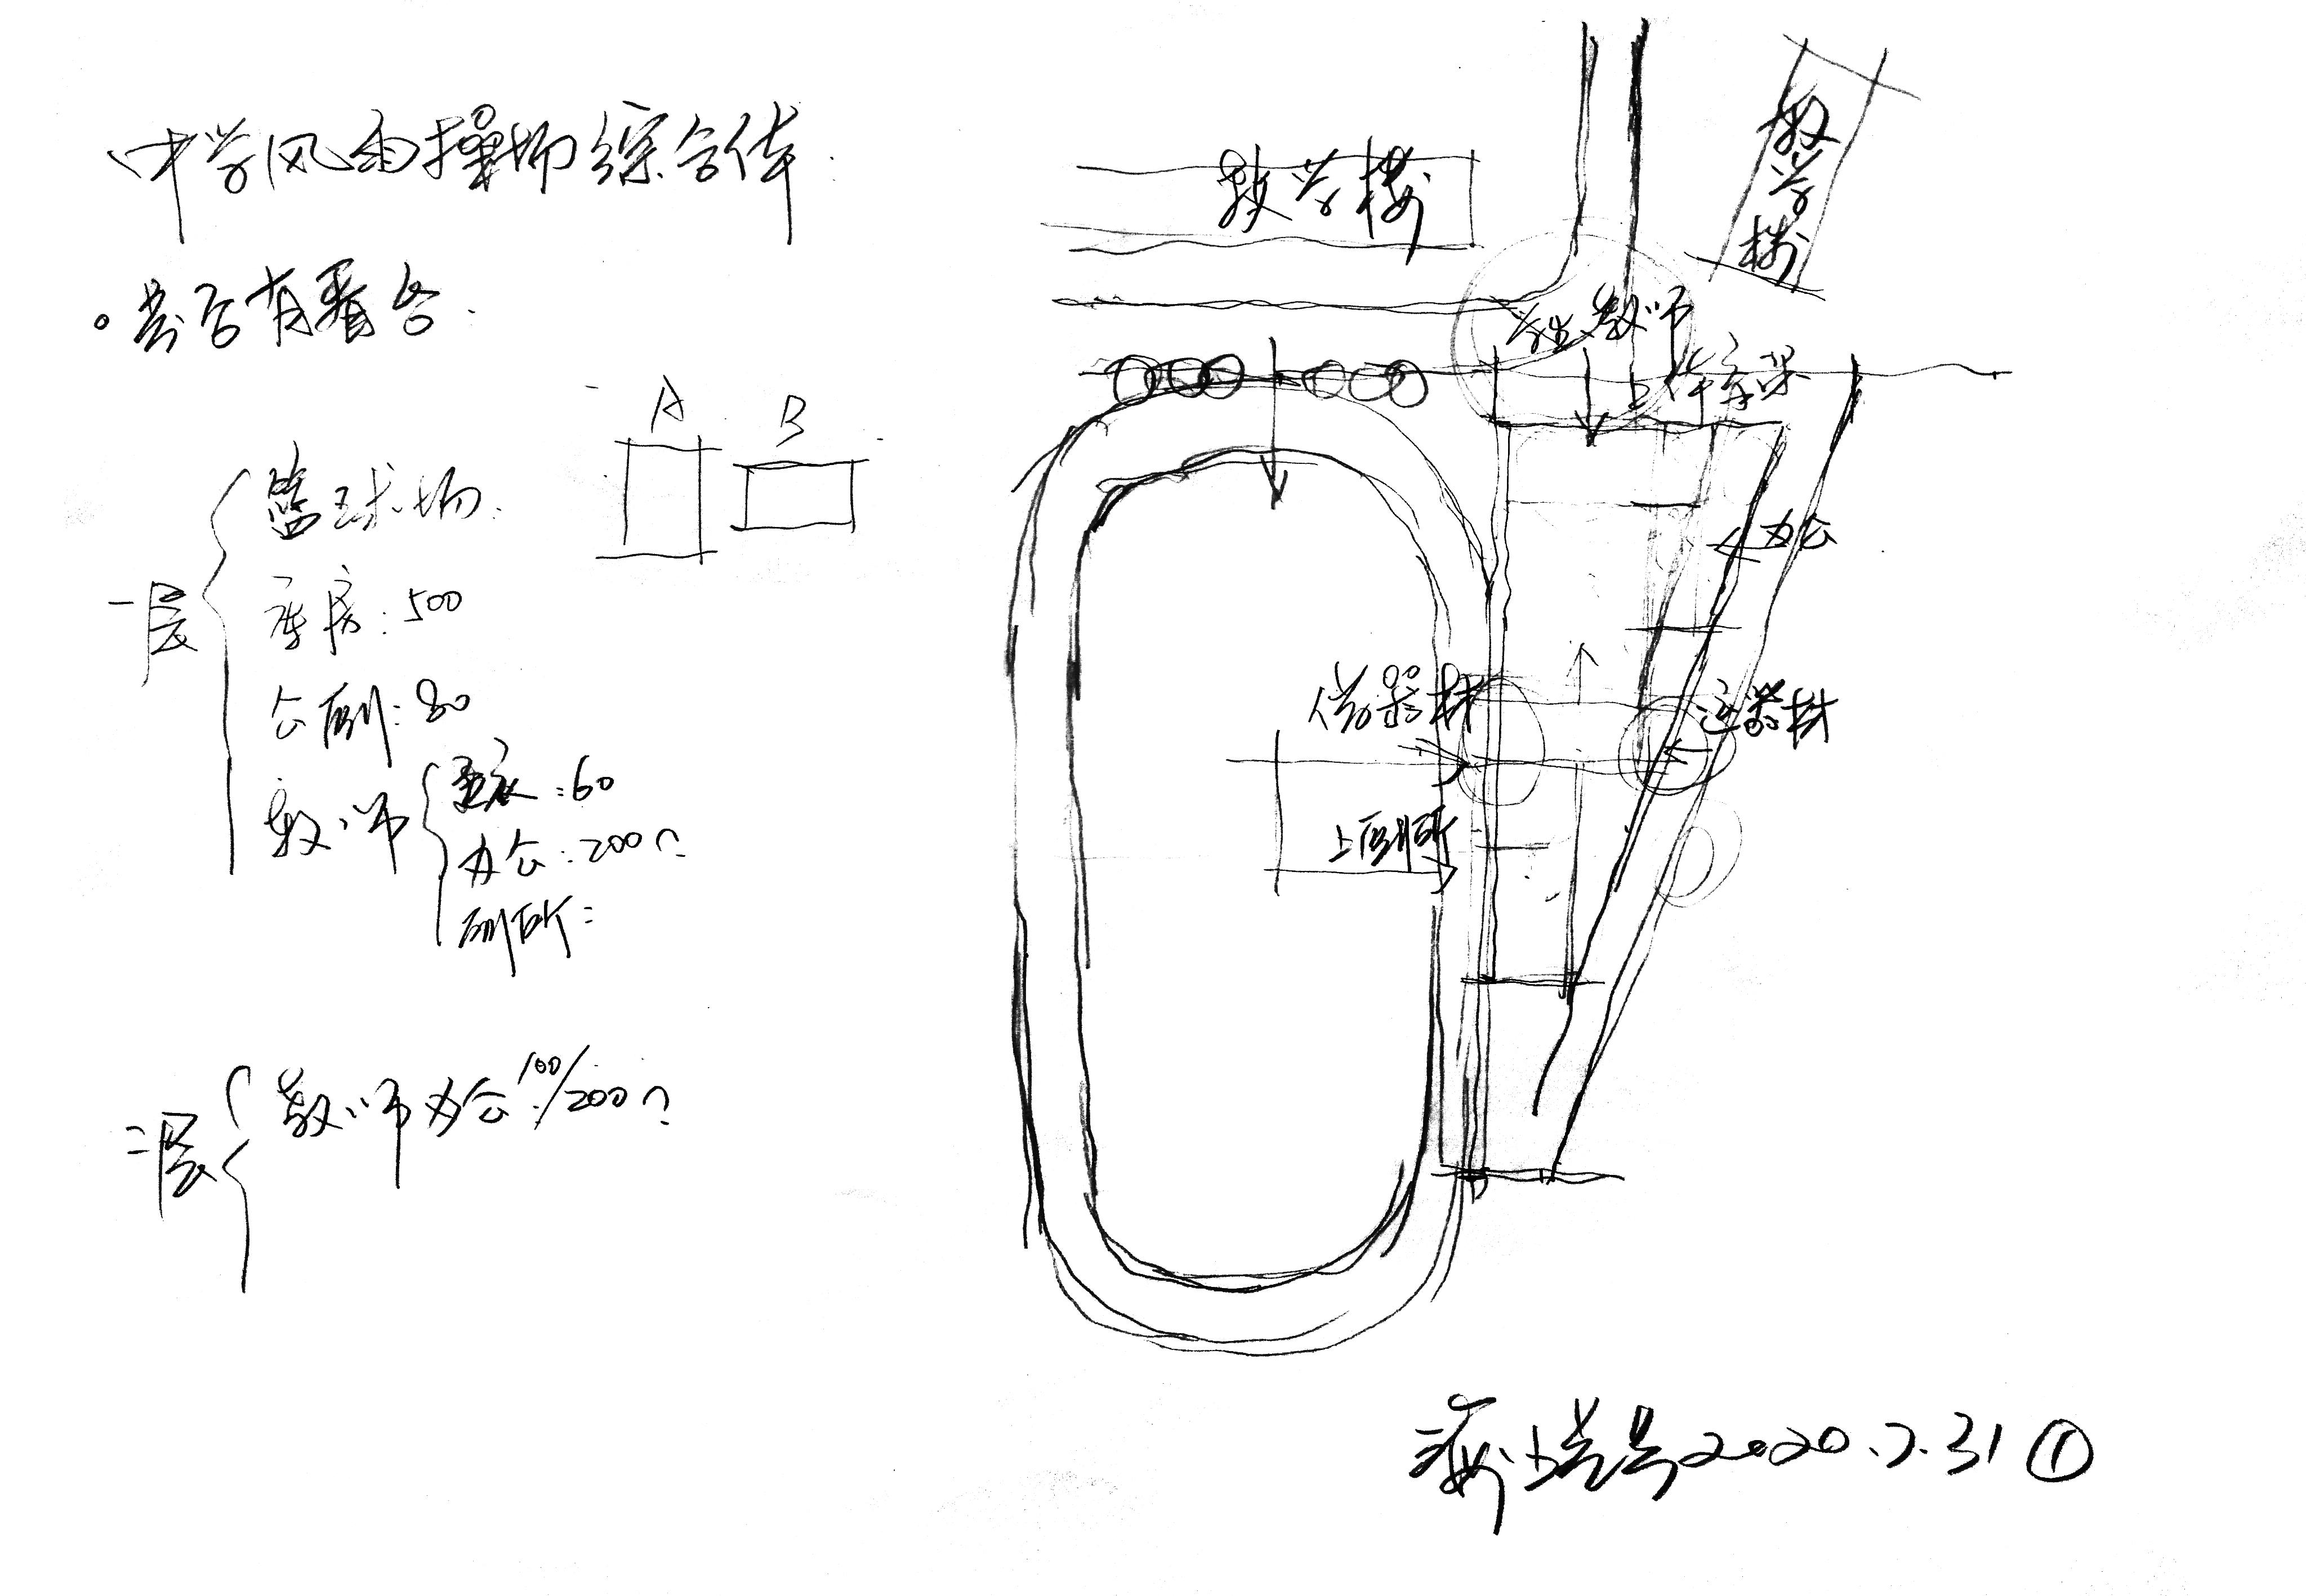 中学风雨操场综合体
。是否有看台.
A
B
一层
篮球场.
库房:500
公厕:80
教师
更衣:60
办公:200㎡
厕所:
二层
教师办公:100/200㎡
教学楼
教学楼
学生、教师
上体育课
办公
借器材
运器材
上厕所
2020.7.31 ①